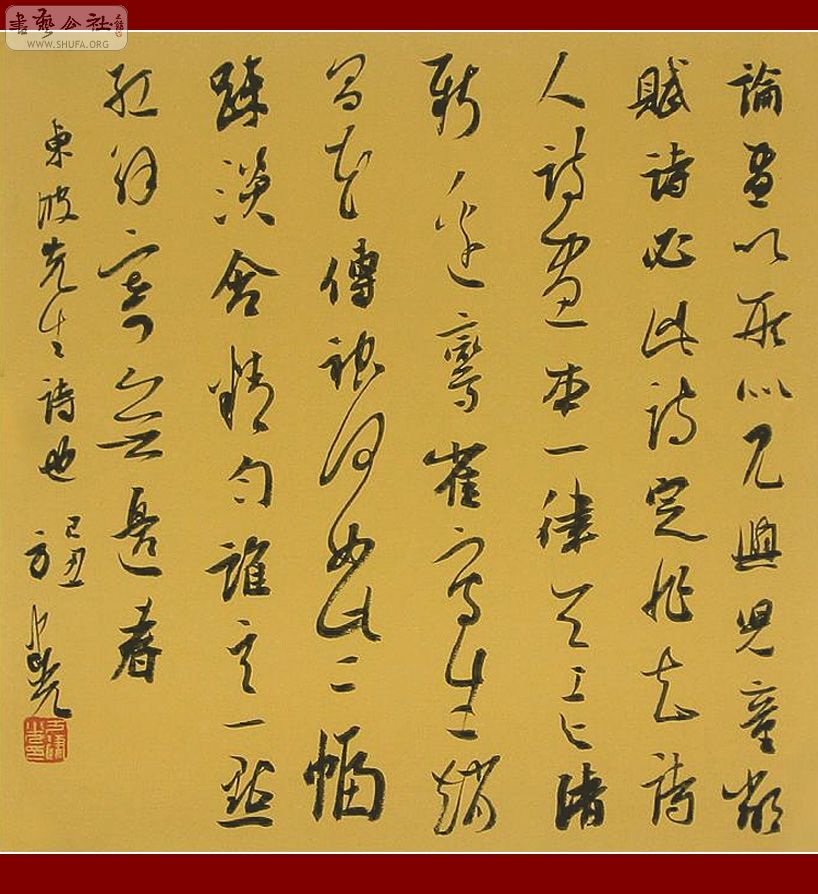 書藝公社
WWW.SHUFA.ORG
論畫以形似見與兒童鄰
賦詩必此詩定非知詩
人詩畫本一律天工与清
新邊鸞雀寫生趙
昌花傳神何如此二幅
疎淡含精勻誰言一點
紅解寄無邊春
東坡先生詩也 己丑